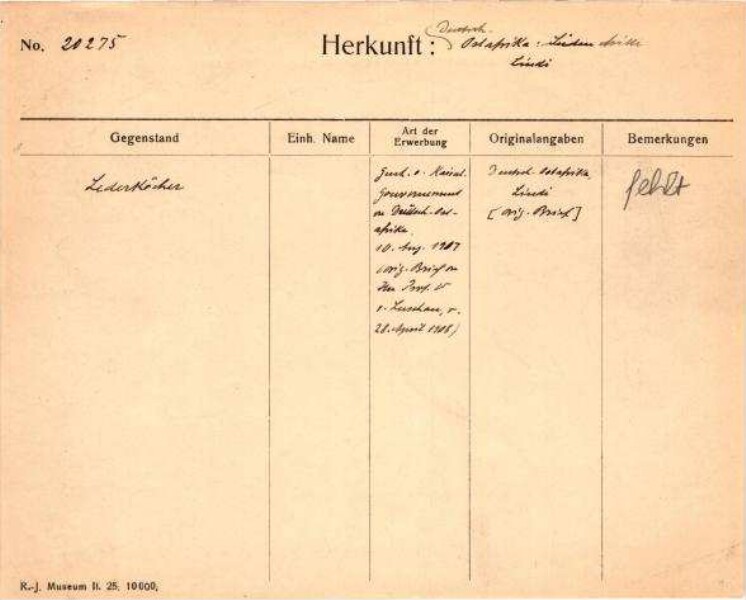 No. 20275
Herkunft: Deutsch-
Ostafrika:
Lindi
Gegenstand
Einh. Name
Art der Erwerbung
Originalangaben
Bemerkungen
Lederköcher
Gesch. v. Kaiserl.
Gouvernement
von Deutsch-Ost-
afrika.
10. Aug. 1907
(orig. Brief an
Herr Prof.
v. Luschan, v.
28. April 1908)
Deutsch-Ostafrika,
Lindi
[orig. Brief]
fehlt
R.-J. Museum II. 25. 10000.